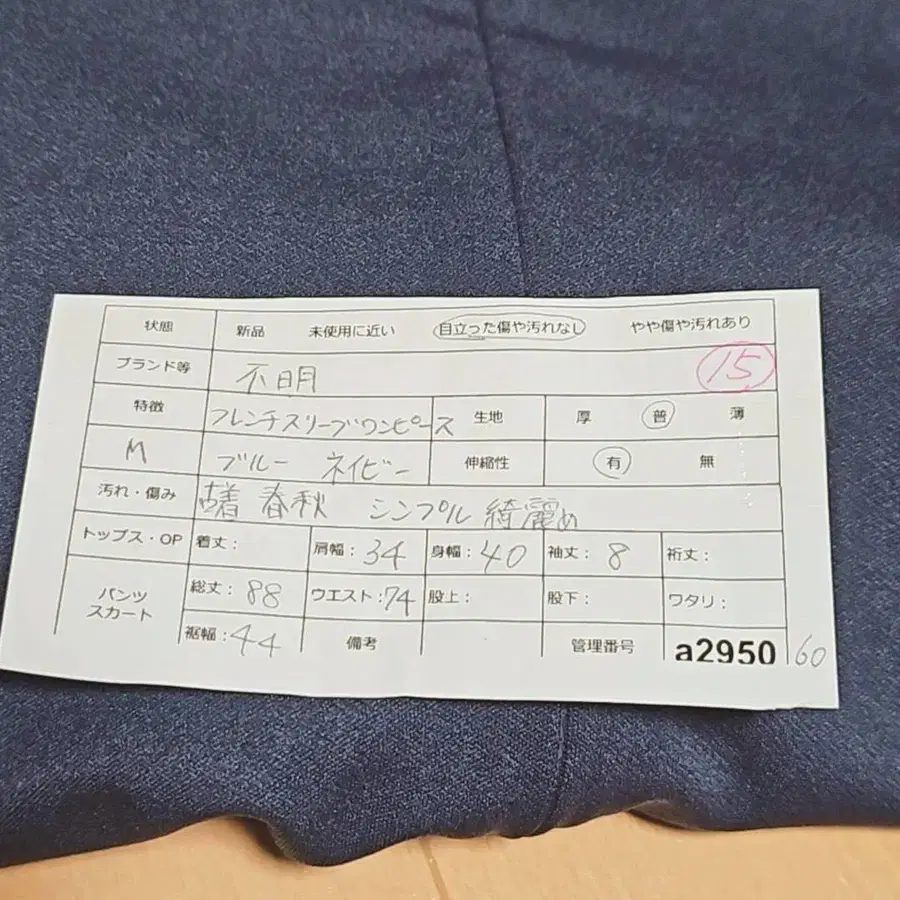 状態 新品 未使用に近い 目立った傷や汚れなし やや傷や汚れあり
ブランド等 不明 15
特徴 フレンチスリーブワンピース 生地 厚 普 薄
M ブルー ネイビー 伸縮性 有 無
汚れ・傷み 古着 春秋 シンプル 綺麗め
トップス・OP 着丈: 肩幅:34 身幅:40 袖丈:8 裄丈:
パンツ スカート 総丈:88 ウエスト:74 股上: 股下: ワタリ:
裾幅:44 備考 管理番号 a2950 60